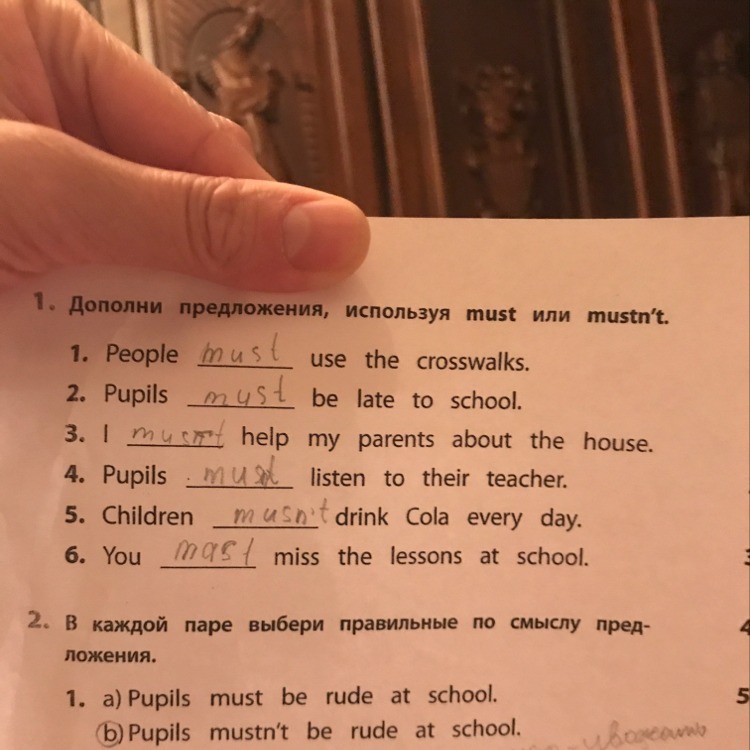 1. Дополни предложения, используя must или mustn't.
1. People must use the crosswalks.
2. Pupils must be late to school.
3. I help my parents about the house.
4. Pupils must listen to their teacher.
5. Children musn't drink Cola every day.
6. You mast miss the lessons at school.
3
2. В каждой паре выбери правильные по смыслу пред-
4
ложения.
1. a) Pupils must be rude at school.
5
b) Pupils mustn't be rude at school.